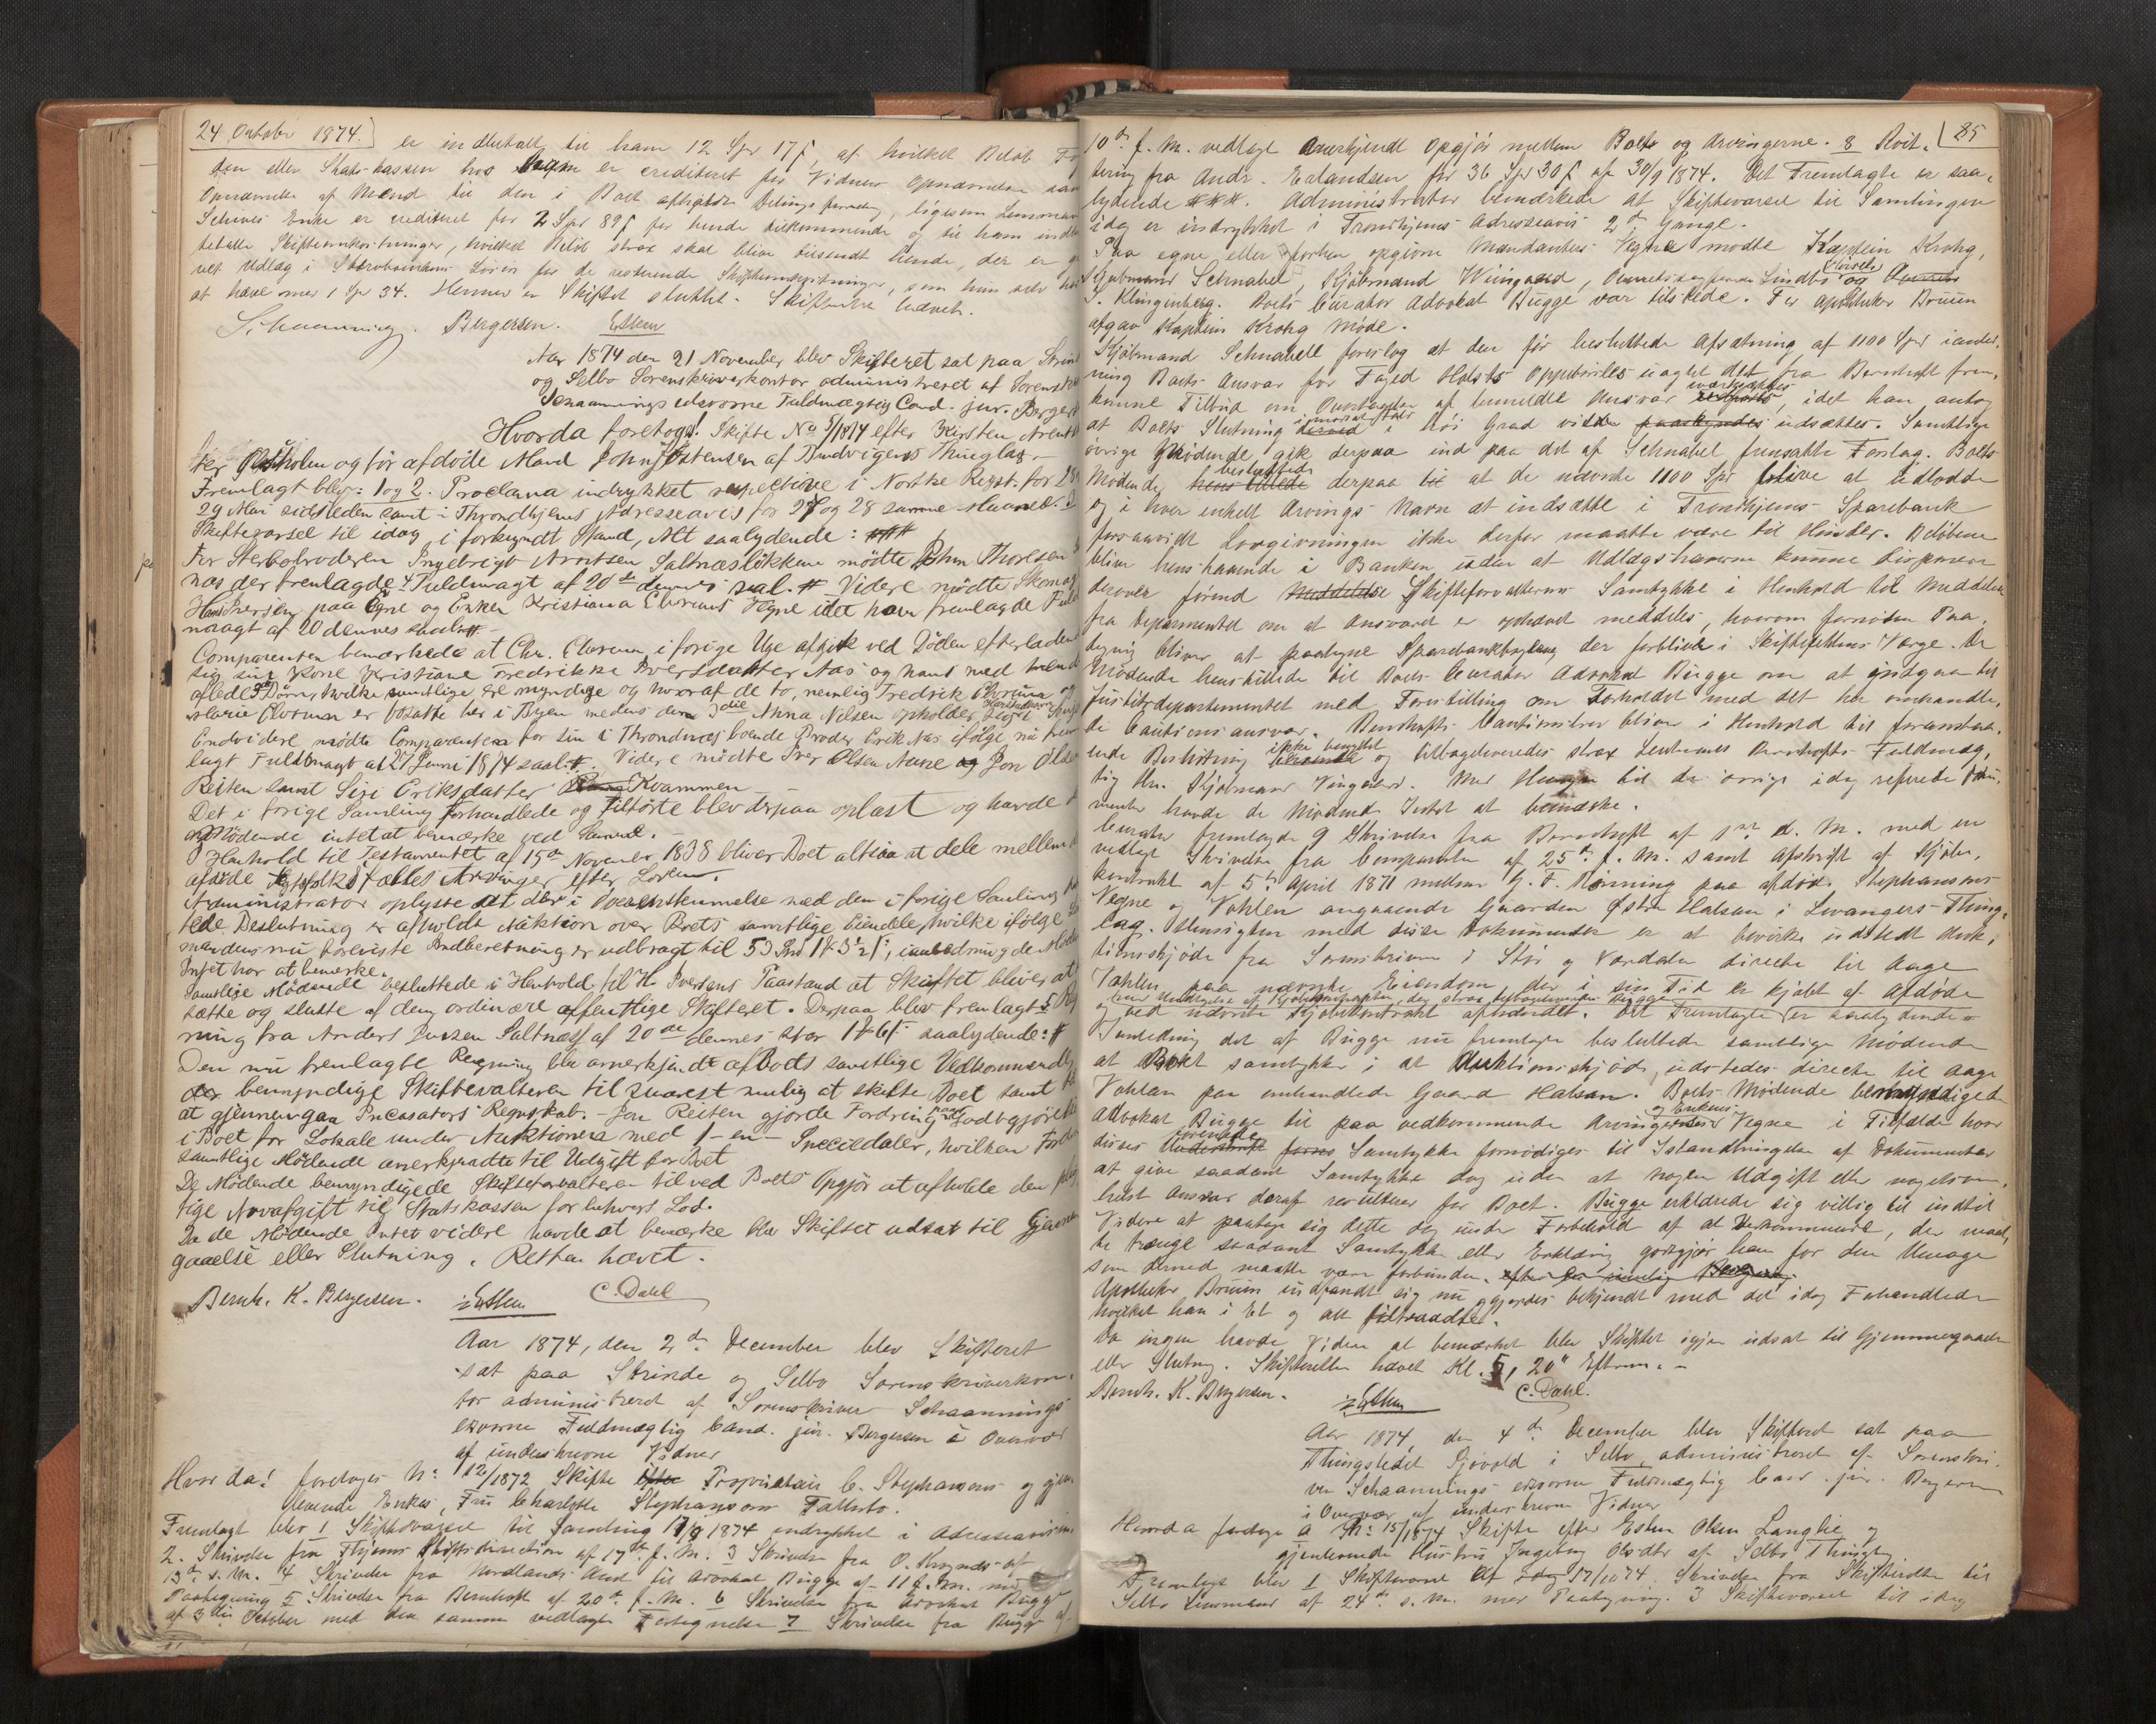 24 October 1874.
er indbetalt til ham 12 Spd 17 s, af hvilket Beløb
den eller Stats-kassen hos ham er crediteret for Vidners Opnævnelse
Opnævnelse af Mænd til den i Boet afholdte, ligesom
Schives Enke er crediteret for 2 Spd 89 s for hende tilkommende og til ham
betalte Skifteomkostninger, hvilket Beløb strax skal blive tilsendt hende, der er
vet Udlæg i for de resterende Skifteomkostninger, som hun selv
at have mer 1 Spd 34. Hermed er Skiftet sluttet. Skifteretten hævet.
Schaanning. Bergersen. Esten
Aar 1874 den 21 November blev Skifteret sat paa
og Selbo Sorenskriverkontor administreret af
Schaannings edsvorne Fuldmægtig Cand. jur.
Hvorda foretoges! Skifte No 5/1874 efter Kirsten
og før afdøde Mand John Estensen af Budvigens Thinglag.
Fremlagt blev: 1 og 2. Proclama indrykket respective i Norske Rigst. for
29 Mai sidstleden samt i Throndhjems Adresseavis for 27 og 28 samme Maaned.
Skiftevarsel til idag i forkyndt Stand, Alt saalydende:
For Sterbobroderen Ingebrigt Arntsen Saltnæsløkken mødte John Thorlesen
næs der fremlagde 4 Fuldmagt af 20de dennes saal. # Videre mødte
Hans Iversen paa Egne og Enken Kristiana Elverums Vegne idet han fremlagde
magt af 20 dennes saal. #
Comparenten bemærkede at Chr. Elverum i forige Uge afgik ved Døden efterladende
sig sin Kone Kristiane Fredrikke Iversdatter Næs og hans med hende
aflede 3de Børn, hvilke samtlige ere myndige og hvoraf de to, nemlig Fredrik Elverum og
Marie Elverum er bosatte her i Byen medens den 3die Anna Nilsen opholder
Endvidere mødte Comparenten for sin i Throndnæs boende Broder Erik Næs ifølge nu
lagt Fuldmagt af 27 Juni 1874 saal. #. Videre mødte Iver Olsen og Jon
Reiten samt Siri Eriksdatter Kvammen
Det i forige Samling Forhandlede og Tilførte blev derpaa oplæst og havde
Mødende intet at bemærke ved Samme.
I Henhold til Testamentet af 15de November 1838 bliver Boet altsaa at dele mellem
afdøde Ægtefolks fælles Arvinger efter Loven.
Administrator oplyste at der i Overensstemmelse med den i forige Samling
tede Beslutning er afholdt Auktion over Boets samtlige Eiendele, hvilke ifølge
mandens nu foreviste Indberetning er udbragt til 53 Spd,
Intet har at bemærke.
Samtlige Mødende besluttede i Henhold til H. Iversens Paastand at Skiftet bliver at
sætte og slutte af den ordinære offentlige Skifteret. Derpaa blev fremlagt 5
ning fra Anders Saltnæs af 20de dennes stor saalydende: #
Den nu fremlagte Regning blev anerkjendt af Boets samtlige Vedkommende
der bemyndige Skifteforvalteren til snarest mulig at skifte Boet samt
at gjennemgaa Incasators Regnskab. - Jon Reiten gjorde Fordring paa Godtgjørelse
i Boet for Lokale under Auktionen med 1 - en - Speciedaler, hvilken
samtlige Mødende anerkjendte til Udgift for Boet
De Mødende bemyndigede Skifteforvalteren til ved Boets Opgjør at afholde den
tige Arveafgift til Statskassen for hvers Lod.
Da de Mødende Intet videre havde at bemærke blev Skiftet udsat til
gaaelse eller Slutning. Retten hævet.
Bernh. K. Bergersen. Esten C. Dahl
Aar 1874, den 2de December blev Skifteret
sat paa Strinde og Selbo Sorenskriverkon-
tor administreret af Sorenskriver Schaannings
edsvorne Fuldmægtig Cand. jur. Bergersen i Overvær
af underskrevne Vidner
Hvorda! foretoges No 12/1872 Skifte efter Proprietair C. Stephansons og
levende Enkes, Fru Charlotte Stephansons Fallitbo.
Fremlagt blev 1 Skiftevarsel til Samling 17/9 1874 indrykket i
2. Skrivelse fra Thjems Stiftsdirection af 17de f. M. 3 Skrivelse fra O.
13de s. M. 4 Skrivelse fra Nordlands Amt til Advokat Bugge af 11 f. m.
Paategning 5 Skrivelse fra Bernhoft af 20de f. M. 6 Skrivelse fra Advokat Bugge
af 3die October med den samme vedlagte Fortegnelse 7 Skrivelse fra Bugge
85
10de f. M. vedlagt anerkjendt Opgjør mellem Boet og Arvingerne. 8 Kvit-
tering fra Andr. Erlandsen for 36 Spd 30 s af 30/9 1874. Det Fremlagte er saa-
lydende ###. Administrator bemærkede at Skiftevarsel til Samlingen
idag er indrykket i Trondhjems Adresseavis 2de Gange.
Paa egne eller forhen opgivne Mandanters Vegne mødte Kaptein Krohg,
Kjøbmand Schnabel, Kjøbmand Wiingaard, Lindbo og
J. Klingenberg. Boets Curator Advokat Bugge var tilstede. For Apotheker Bruun
afgav Kaptein Krohg Møde.
Kjøbmand Schnabell foreslog at den før besluttede Afsætning af 1100 Spd i anled-
ning Boets Ansvar for Foged Holsts uagtet det fra Bernhoft frem-
komne Tilbud om Overtagelse af bemeldte Ansvar, idet han antog
at Boets Slutning i modsat Fald i høi Grad vilde udsættes. Samtlige
øvrige Mødende gik derpaa ind paa det af Schnabel fremsatte Forslag. Boets
Mødende besluttede derpaa at de nævnte 1100 Spd blive at udlodde
og i hver enkelt Arvings Navn at indsætte i Trondhjems Sparebank
forsaavidt Lovgivningen ikke derfor maatte være til Hinder. Beløbene
blive henstaaende i Banken uden at Udlægshaverne kunne disponere
derover førend Skifteforvalterens Samtykke i Henhold til Meddelelse
fra Departementet om at Ansvaret er ophævet meddeles, hvorom fornøden Paa-
tegning bliver at paategne Sparebankbogen, der forbliver i Skifterettens Værge. De
Mødende henstillede til Boets Curator Advokat Bugge om at indgaa til
Justitsdepartementet med Forestilling om Forholdet med det her omhandle-
de Cautionsansvar. Bernhofts Cautionstilbud bliver i Henhold til foranstaa-
ende Beslutning ikke benyttet og tilbageleveredes strax Bernhofts Fuldmæg-
tig Hr. Kjøbmand Vingaard. Med Hensyn til de øvrige idag refererede Doku-
menter havde de Mødende Intet at bemærke.
Curator fremlagde 9 Skrivelse fra Bernhoft af 1ste d. M. med en
vedlagt Skrivelse fra af 25de f. M. samt Afskrift af Kjøbe-
kontrakt af 5te April 1871 mellem G. F. Rønning paa afdøde Stephansons
Vegne og Vohlen angaaende Gaarden Østre Halsan i Levangers Thing-
lag. Hensigten med disse Dokumenter er at bevirke udstedt Auk-
tionsskjøde fra Sorenskriveren i Stør og Værdalen directe til Aage
Vohlen paa nævnte Eiendom, der i sin Tid er kjøbt af Afdøde
og ved nævnte Kjøbekontrakt afhændet. Det Fremlagte er saalydende #
I Anledning det af Bugge nu fremlagte besluttede samtlige Mødende
at Boet samtykker i at Auktionsskjøde udstedes directe til Aage
Vohlen paa omhandlede Gaard Halsan. Boets Mødende bemyndigede
Advokat Bugge til paa vedkommende Arvingers og Enkens Vegne i Tilfælde hvor
disses Samtykke fornødiges til Istandbringelse af Dokumenter
at give saadant Samtykke dog uden at nogen Udgift eller nogetsom-
helst Ansvar deraf resulterer for Boet. Bugge erklærede sig villig til indtil
Videre at paatage sig dette dog under Forbehold af at Vedkommende, der maat-
te trænge saadant Samtykke eller Erklæring godtgjør ham for den Umage
som dermed maatte være forbunden.
Apotheker Bruun indfandt sig nu og gjordes bekjendt med det idag Forhandlede
hvilket han i Et og alt tiltraadte.
Da ingen havde Videre at bemærke blev Skiftet igjen udsat til Gjennemgaaelse
eller Slutning. Skifteretten hævet Kl. 5, 20" Efterm. -
Bernh. K. Bergersen. Esten C. Dahl.
Aar 1874, den 4de December blev Skifteret sat paa
Thingstedet Sjøvold i Selbo administreret af Sorenskri-
ver Schaannings edsvorne Fuldmægtig Cand. jur. Bergersen
i Overvær af underskrevne Vidner
Hvorda foretoges a No 15/1874 Skifte efter Esten Olsen Langlie og
gjenlevende Hustru Ingeborg Olsdtr af Selbo Thinglag
Fremlagt blev 1 Skiftevarsel af 17/10 74. Skrivelse fra Skifteretten til
Selbo Lensmand af 24de s. M. med Paategning. 3 Skiftevarsel til idag